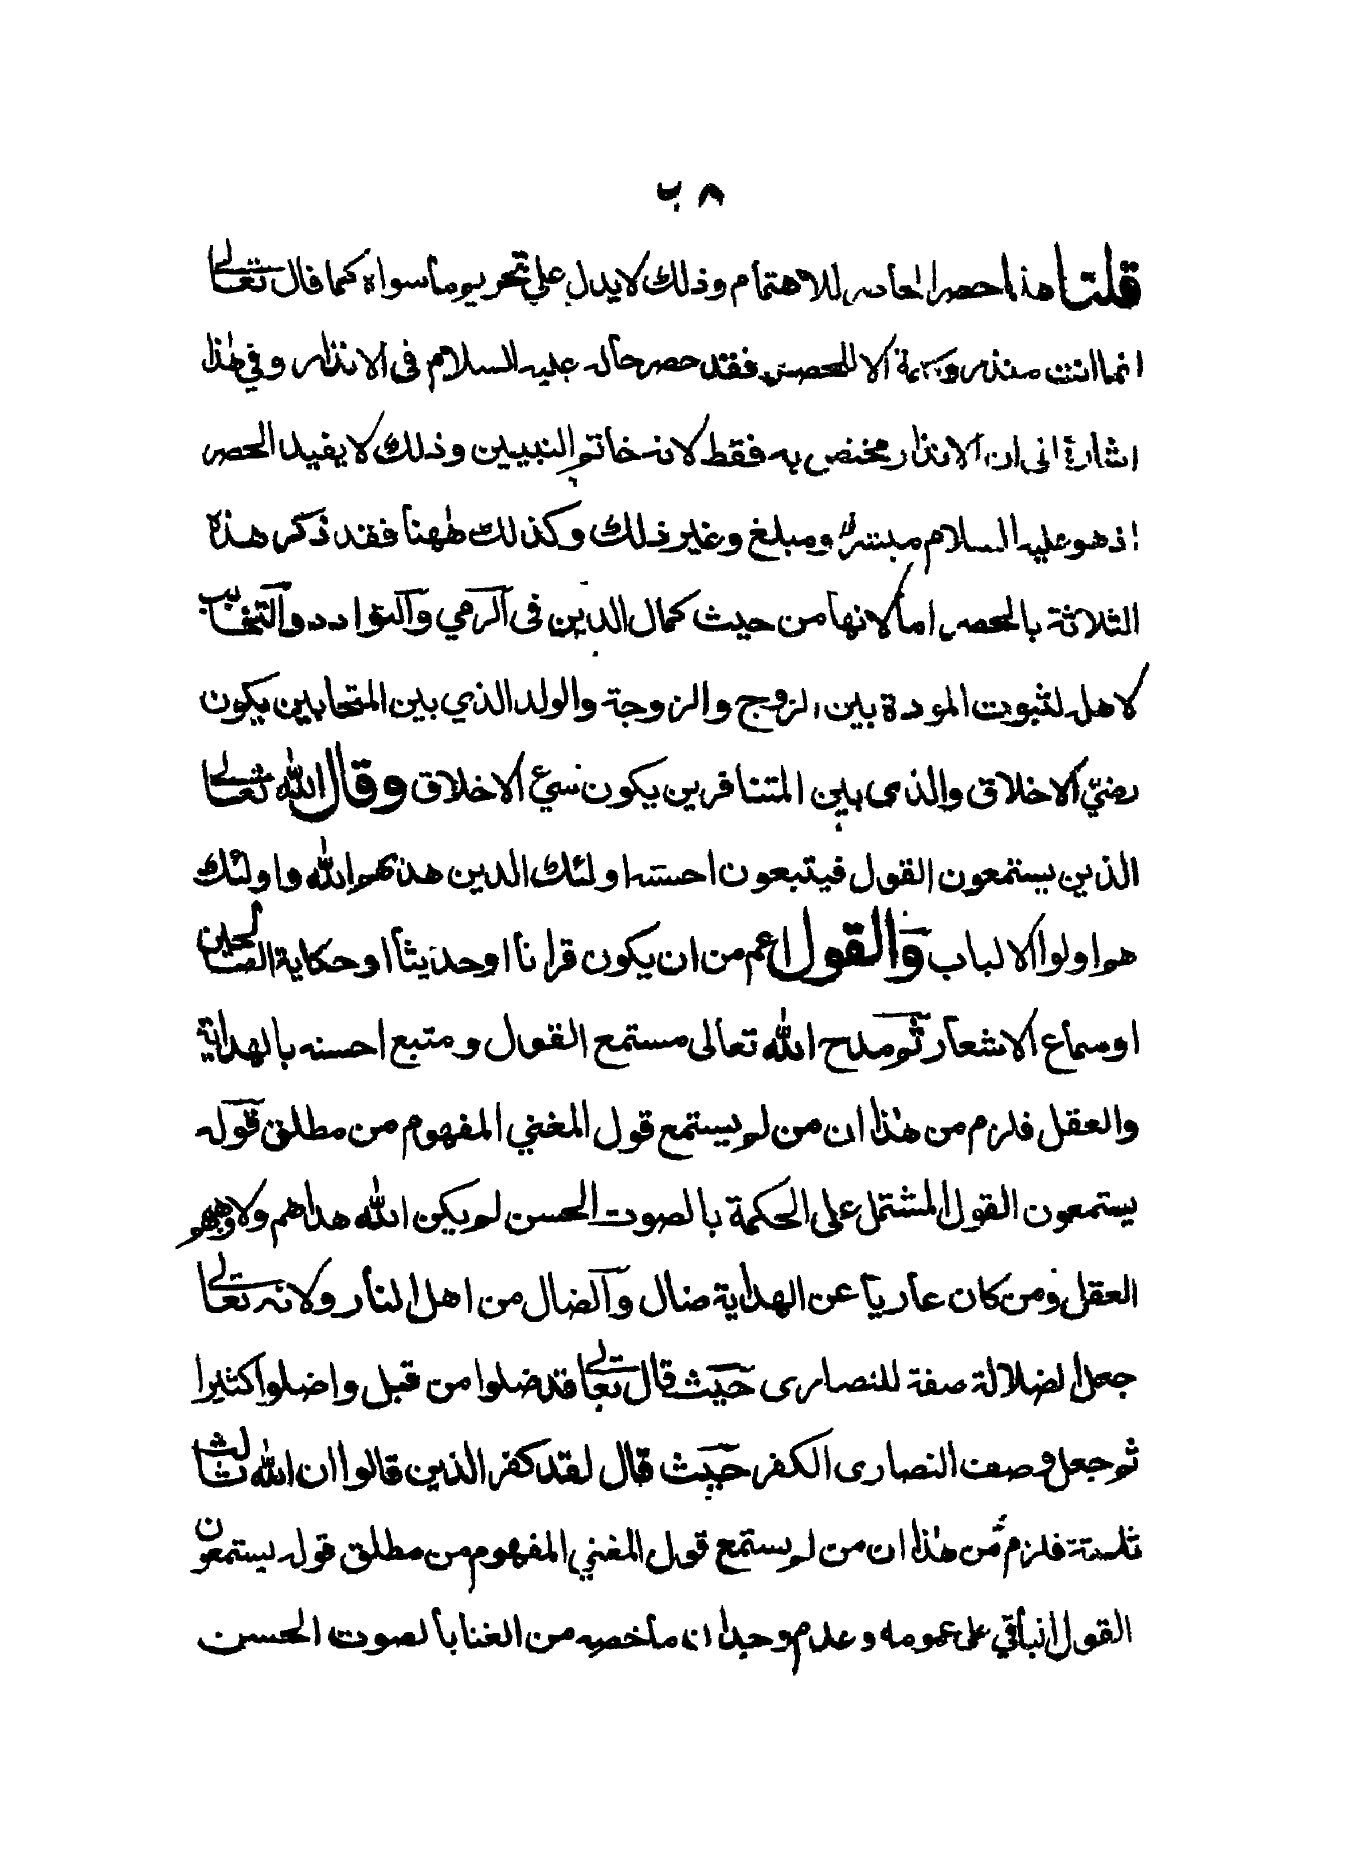 ٨ ب
قلت هذا حصر العادم للاهتمام وذلك لا يدل على تحريم ما سواه كما قال تعالى
انما انت منذر وكلمة الا للحصر فقد حصر حاله عليه السلام فى الانذار وفي هذا
اشارة الى ان الانذار مختص به فقط لانه خاتم النبيين وذلك لا يفيد الحصر
اذ هو عليه السلام مبشر ومبلغ وغير ذلك وكذلك ههنا فقد ذكر هذه
الثلاثة بالحصر اما لانها من حيث كمال الدين فى الرمي والتوادد والتحابب
لاهله لثبوت المودة بين الزوج والزوجة والولد الذي بين المتحابين يكون
رضيّ الاخلاق والذى بين المتنافرين يكون سيء الاخلاق وقال الله تعالى
الذين يستمعون القول فيتبعون احسنه اولئك الدين هداهم الله واولئك
هم اولوا الالباب والقول اعم من ان يكون قرانا او حديثا او حكاية الصالحين
او سماع الاشعار ثم مدح الله تعالى مستمع القول ومتبع احسنه بالهداية
والعقل فلزم من هذا ان من لم يستمع قول المغني المفهوم من مطلق قوله
يستمعون القول المشتمل على الحكمة بالصوت الحسن لم يكن الله هداهم ولا وهبهم
العقل ومن كان عاريا عن الهداية ضال والضال من اهل النار ولانه تعالى
جعل الضلالة صفة للنصارى حيث قال تعالى قد ضلوا من قبل واضلوا كثيرا
ثم جعل وصف النصارى الكفر حيث قال لقد كفر الذين قالوا ان الله ثالث
ثلثة فلزم من هذا ان من لم يستمع قول المغني المفهوم من مطلق قوله يستمعون
القول انباقي على عمومه وعدم وجدان ما خصه من الغنا بالصوت الحسن